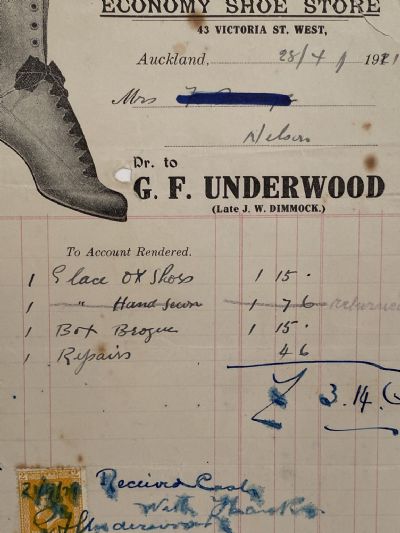 ECONOMY SHOE STORE
43 VICTORIA ST. WEST,
Auckland, 28/4/ 1921
Mrs
Nelson
Dr. to
G. F. UNDERWOOD
(Late J. W. DIMMOCK.)
To Account Rendered.
1 Glace Ox Shoes 1 15 .
1 " Hand Sewn 1 7 6 returned
1 Box Brogue 1 15 .
1 Repairs 4 6
£ 3.14.6
Received Cash
With Thanks
Underwood